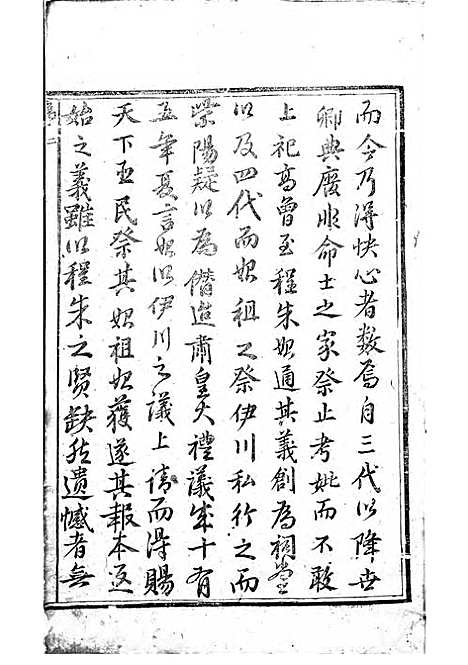 而今乃得快心者數焉自三代以降世
卿典廢非命士之家祭止考妣而不敢
上祀高曾至程朱始通其義創為祠堂
以及四代而始祖之祭伊川私行之而
紫陽疑以為僭逮肅皇大禮議成十有
五年夏言始以伊川之議上請而得賜
天下臣民祭其始祖始獲遂其報本返
始之義雖以程朱之賢缺然遺憾者無
序 二